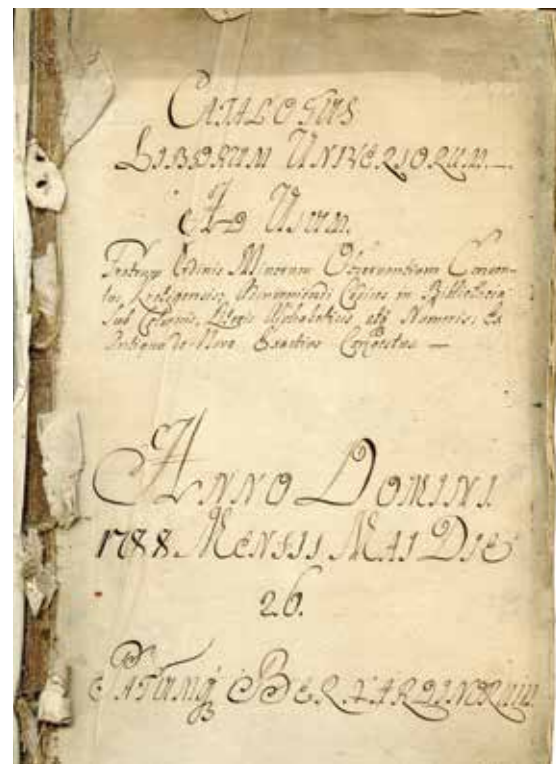 CATALOGUS
LIBRORUM UNIVERSORUM.
Ad Usum.
Fratrum Ordinis Minorum Observantium Conven-
tus Inveniendi Copiosus in Bibliotheca
Sub Literis Alphabeticis atq Numeris, Ex
Antiquo de Novo Exactius Congestus —
ANNO DOMINI.
1788. MENSIS MAI DIE
26.
BERNARDINORUM.